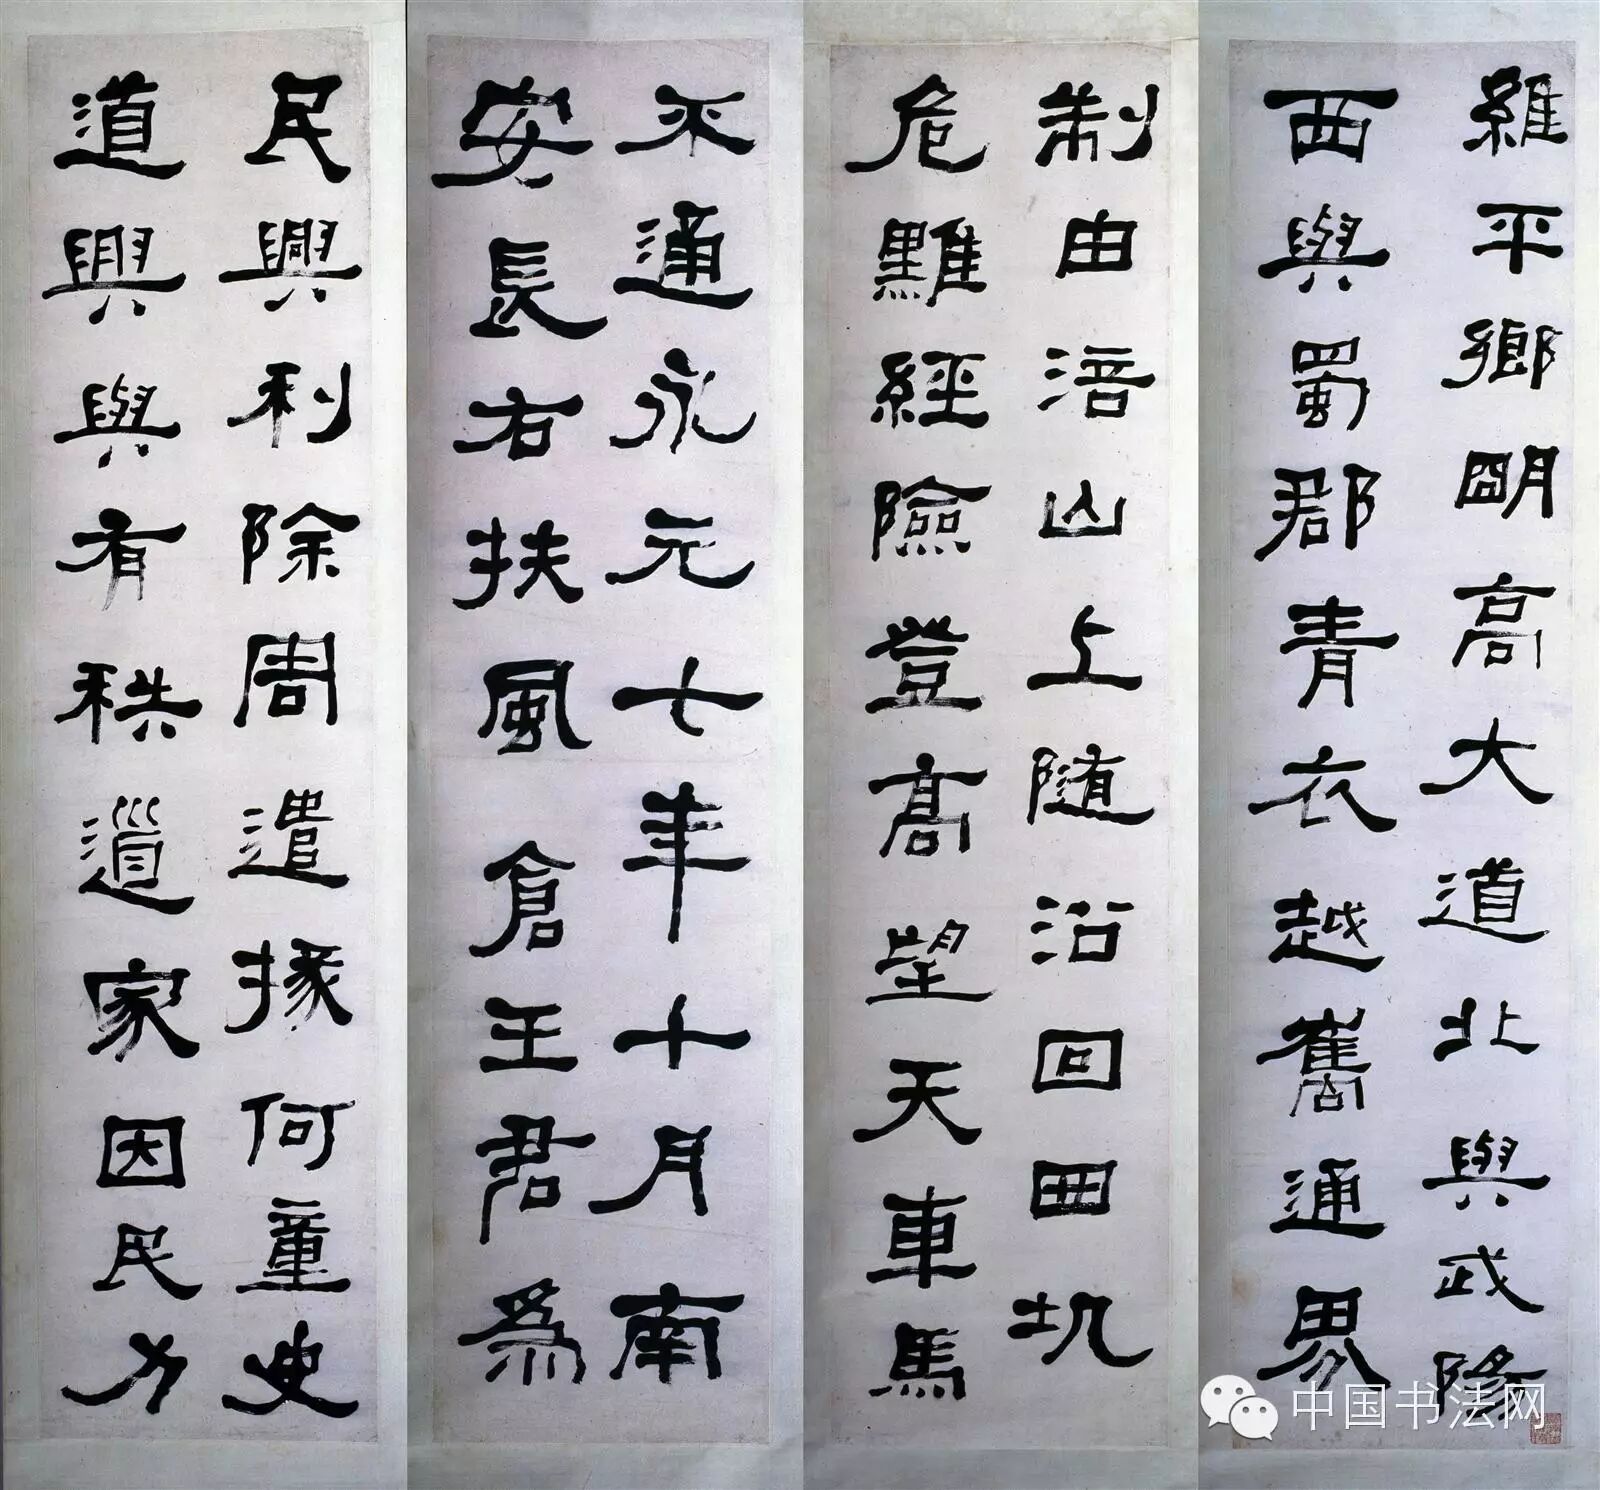 維平鄉明高大道北與武陽
西與蜀郡青衣越巂通界
制由涪山上随沿回曲
危難經險登高望天車馬
不通永元七年十月南
安長右扶風倉王君為
民興利除周遣掾何童史
道興與有秩遒家因民力
中国书法网